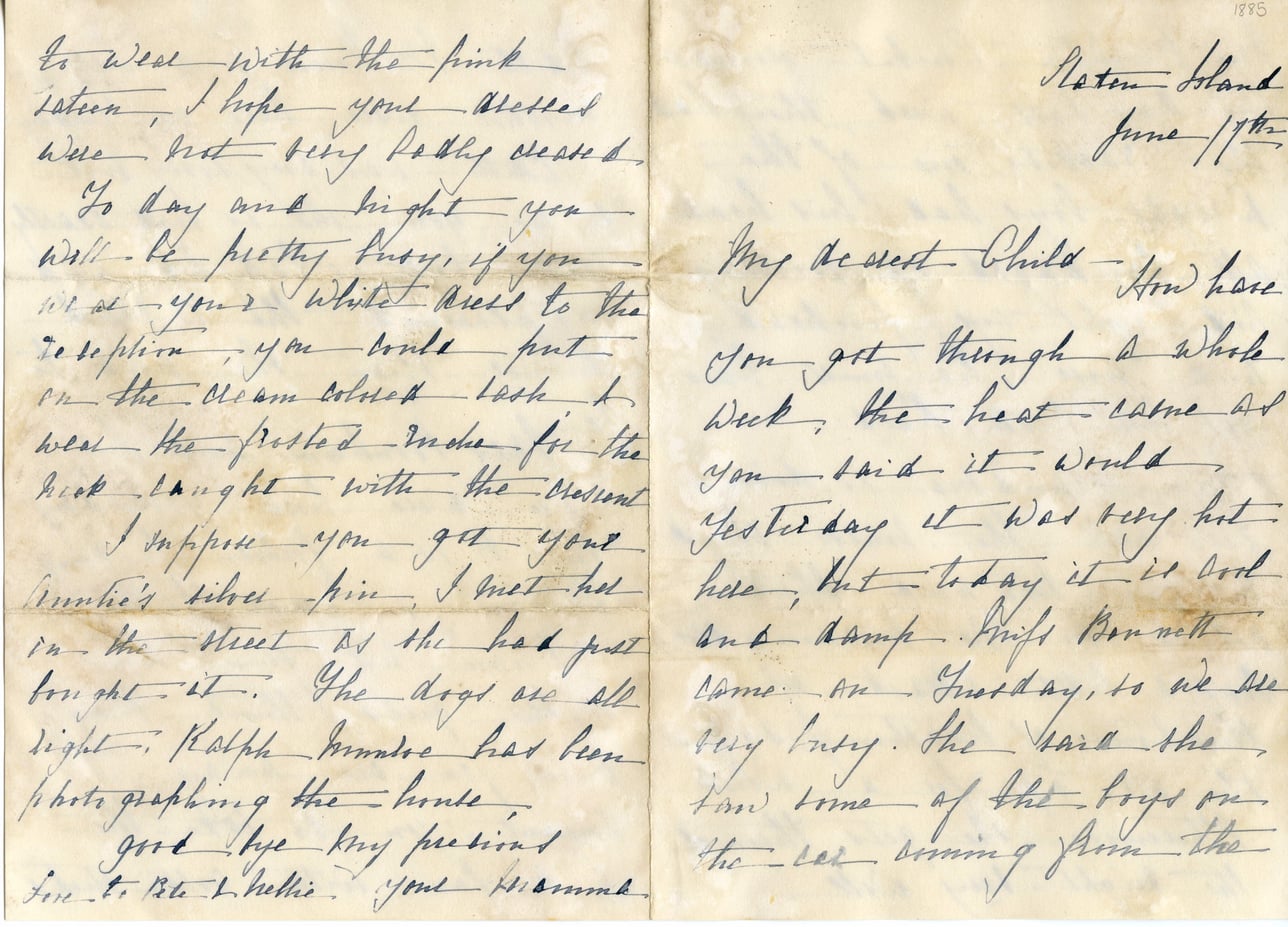 1885
Staten Island
June 17th
My dearest Child –
How have
you got through a whole
week, the heat came as
you said it would
Yesterday it was very hot
here, but today it is cool
and damp. Miss Bennett
came on Tuesday, so we are
very busy. She said she
saw some of the boys on
the car coming from the
to wear with the pink
sateen, I hope your dresses
were not very badly creased
To day and night you
will be pretty busy, if you
wear your white dress to the
reception, you could put
on the cream colored sash, &
wear the frosted ruche for the
neck caught with the crescent
I suppose you got your
Auntie's silver pin, I met her
in the street as she had just
bought it. The dogs are all
right. Ralph Munroe has been
photographing the house,
good bye my precious
Love to Bete & Nellie your Mamma